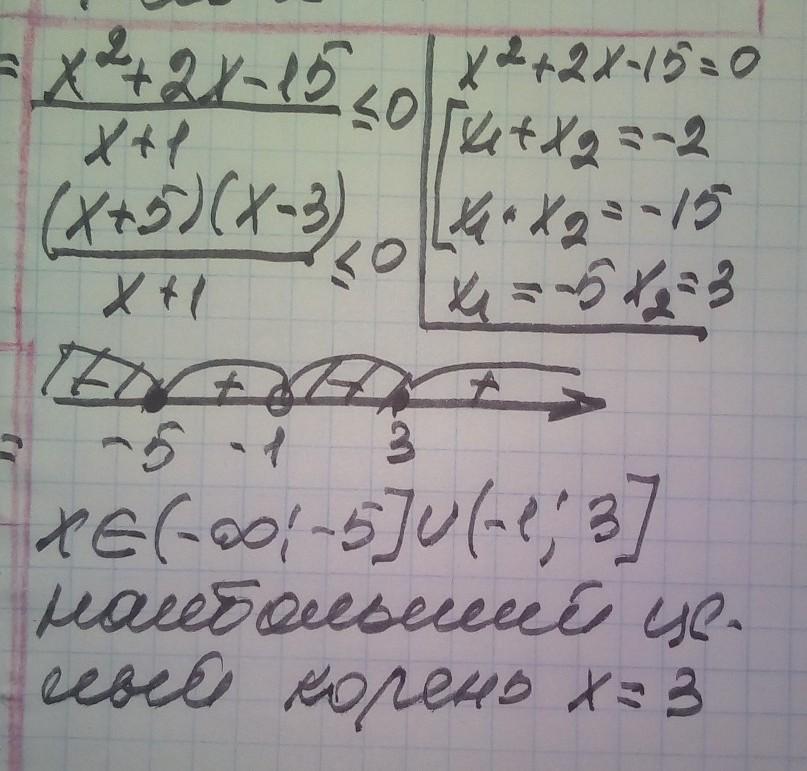 x²+2x-15
x+1
≤0
(x+5)(x-3)
x+1
≤0
x²+2x-15=0
x₁+x₂=-2
x₁·x₂=-15
x₁=-5 x₂=3
- + - +
-5 -1 3
x∈(-∞;-5]∪(-1;3]
наибольший це-
лый корень x=3